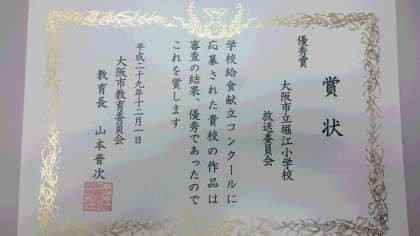 賞状
優秀賞
大阪市立堀江小学校
放送委員会
学校給食献立コンクールに
応募された貴校の作品は
審査の結果、優秀であったので
これを賞します
平成二十九年十二月一日
大阪市教育委員会
教育長 山本晋次